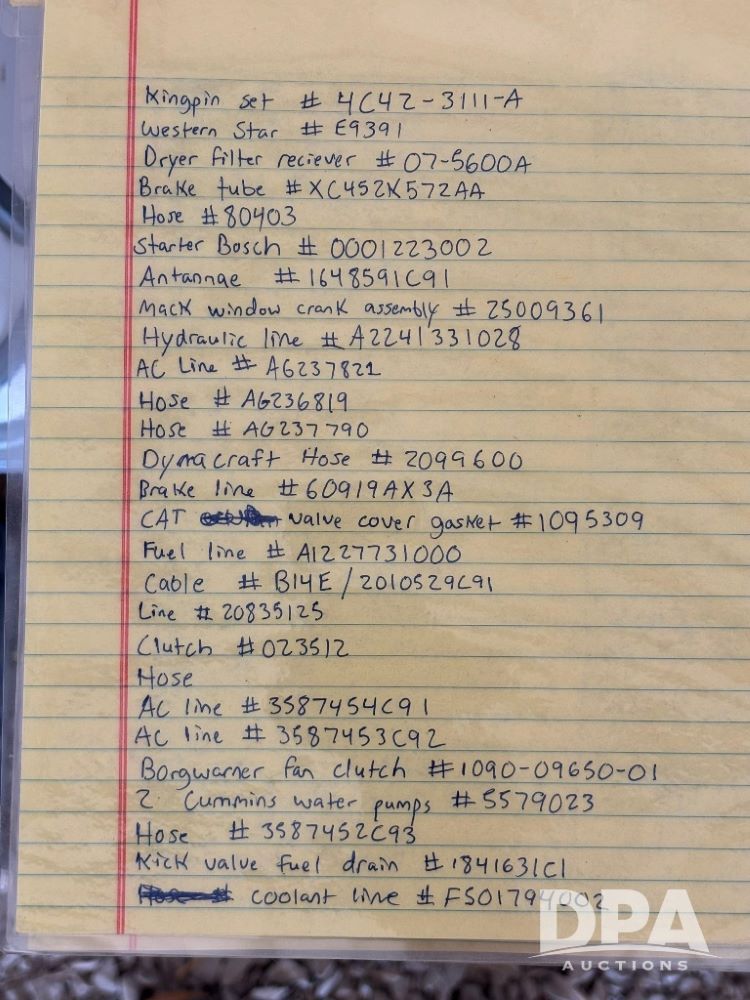 Kingpin set # 4C42-3111-A
Western Star # E9391
Dryer filter reciever # 07-5600A
Brake tube # XC452K572AA
Hose # 80403
Starter Bosch # 0001223002
Antannae # 1648591C91
Mack window crank assembly # 25009361
Hydraulic line # A2241331028
AC Line # AG237821
Hose # AG236819
Hose # AG237790
Dymacraft Hose # 2099600
Brake line # 60919AX3A
CAT valve cover gasket # 1095309
Fuel line # A1227731000
Cable # B14E / 2010529C91
Line # 20835125
Clutch # 023512
Hose
AC line # 3587454C91
AC line # 3587453C92
Borgwarner fan clutch # 1090-09650-01
2 Cummins water pumps # 5579023
Hose # 3587452C93
Kick valve fuel drain # 1841631C1
Hose # coolant line # FS01794002
DPA
AUCTIONS